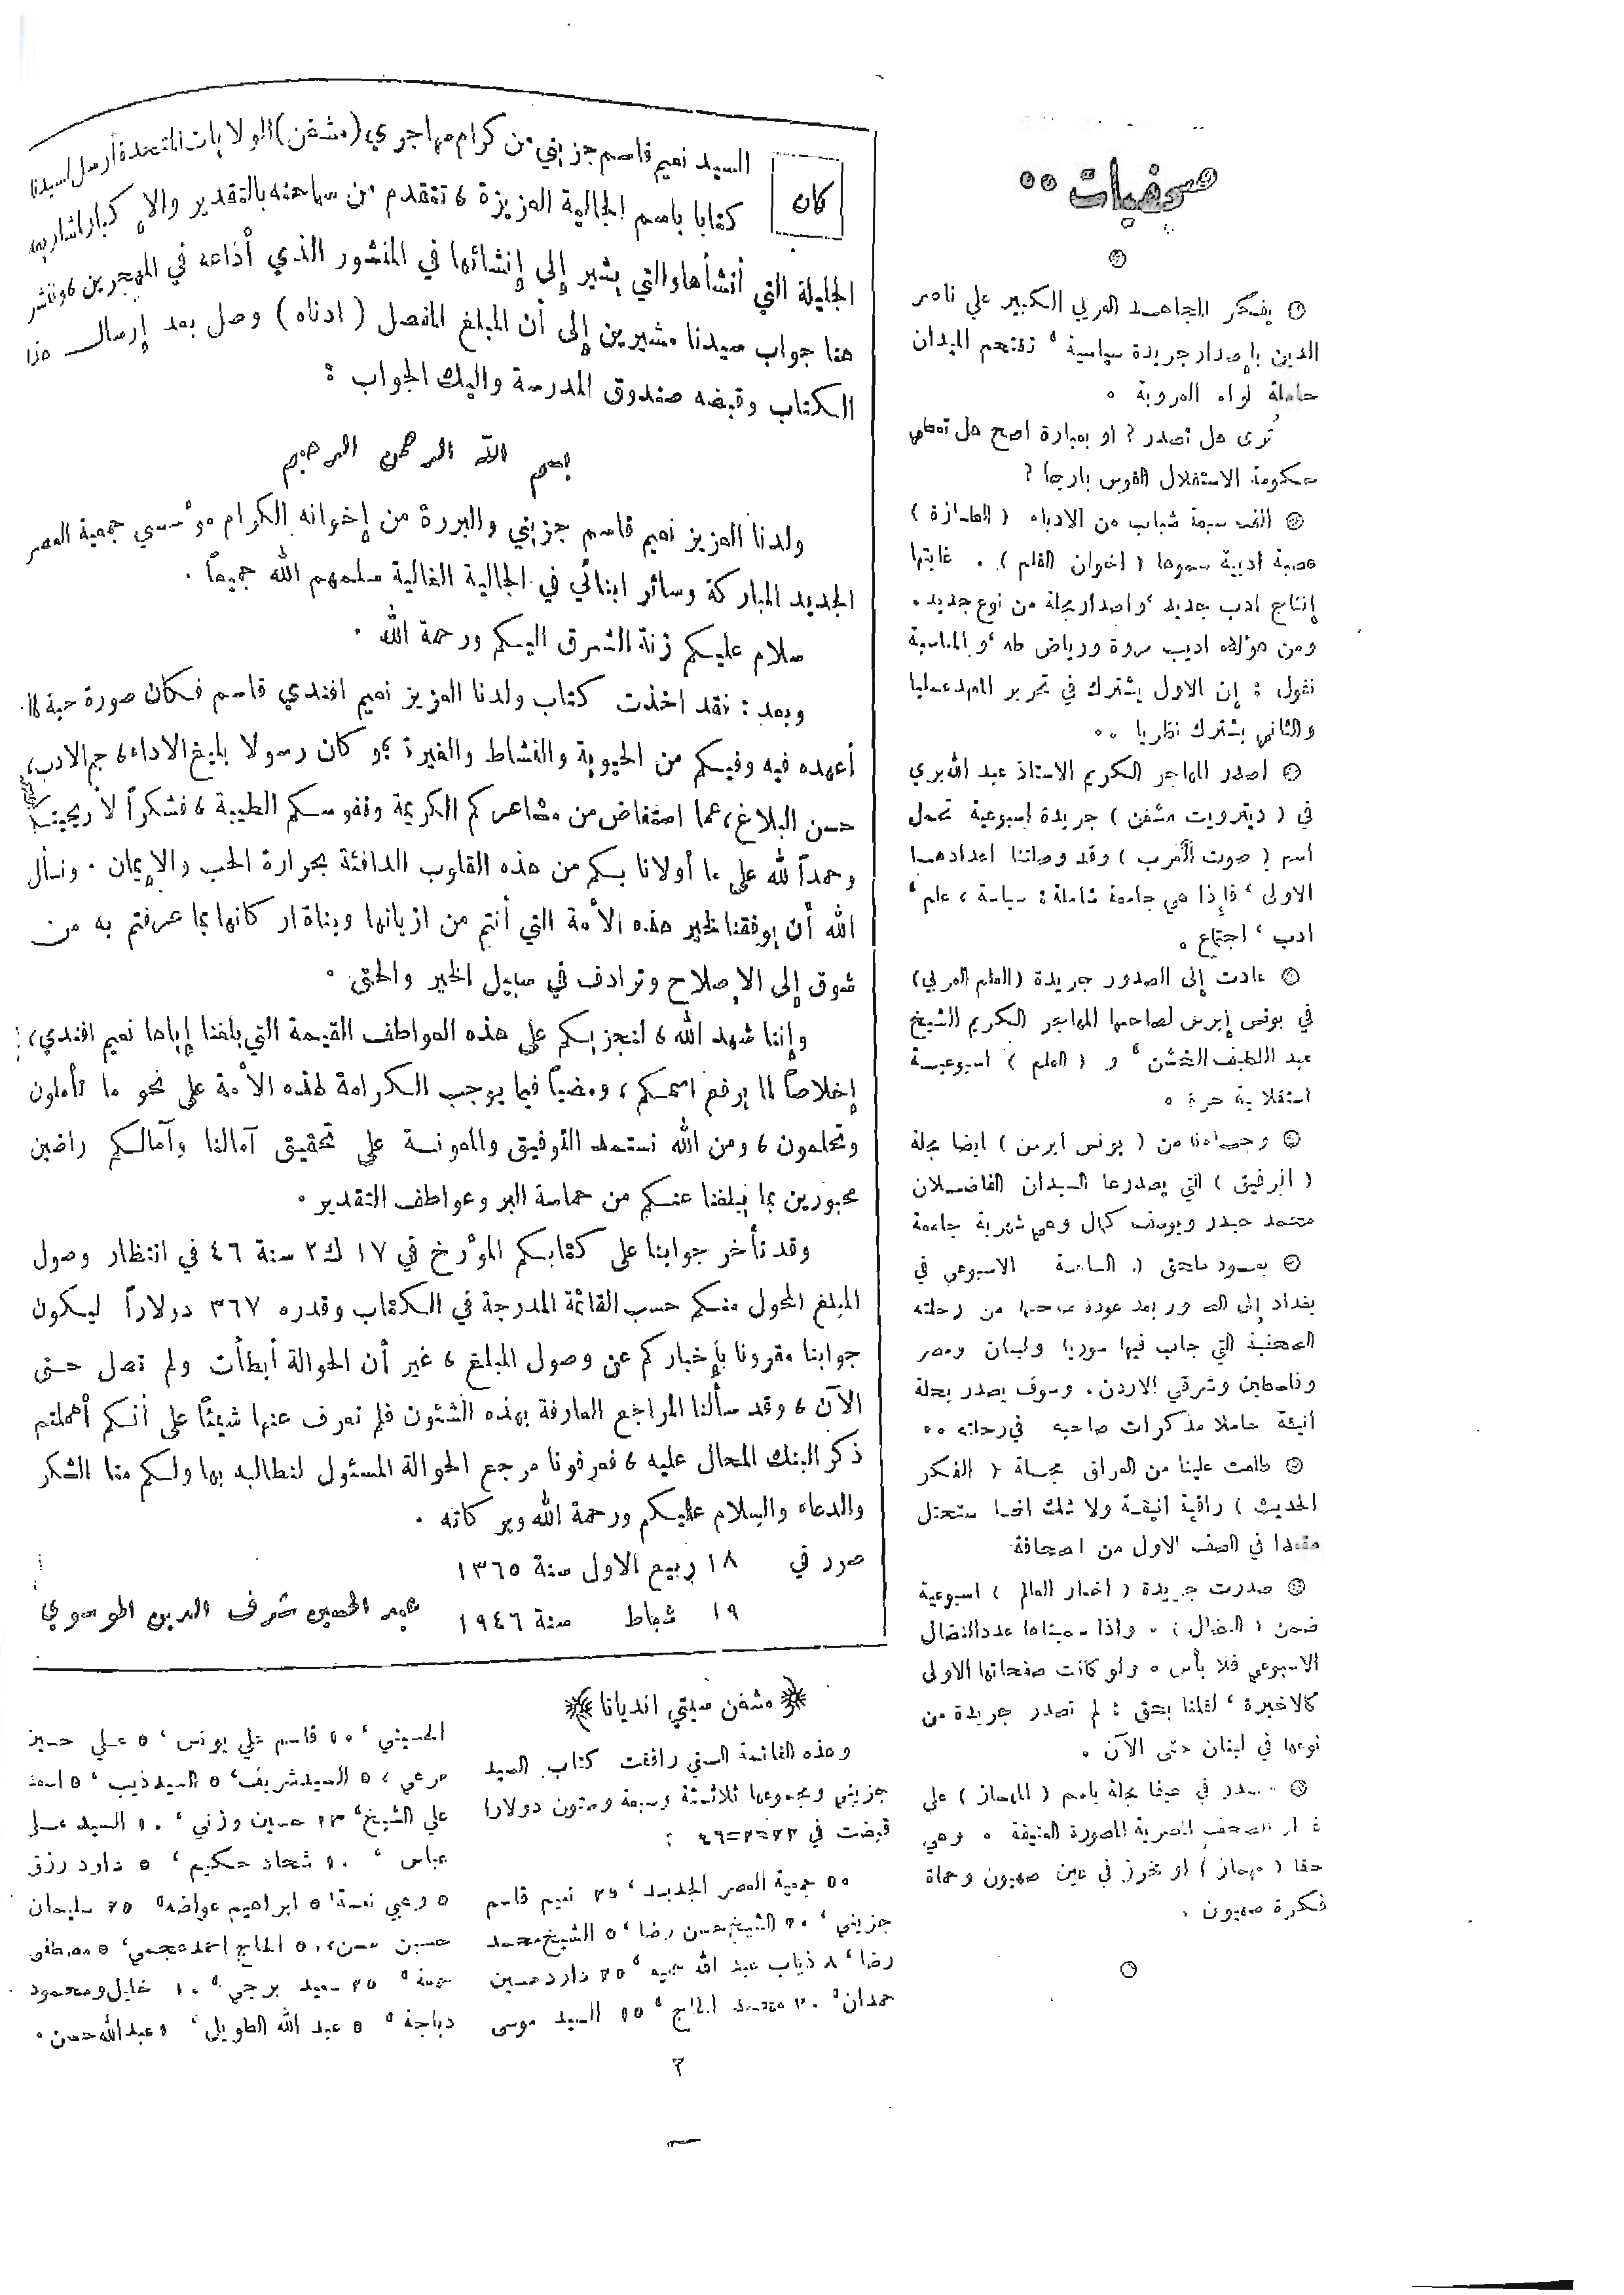 صحفيات ..
يفكر المجاهد العربي الكبير علي ناصر
الدين بإصدار جريدة سياسية ، تقتحم الميدان
حاملة لواء العروبة .
تُرى هل تصدر ؟ او بعبارة اصح هل تعطي
حكومة الاستقلال القوس باريها ؟
الف سبعة شباب من الادباء ( )
عصبة ادبية سموها ( اخوان القلم ) . غايتها
إنتاج ادب جديد ، واصدار مجلة من نوع جديد .
ومن هؤلاء اديب مروة ورياض طه ، و بالمناسبة
نقول : إن الاول يشترك في تحرير المهد عمليا
والثاني يشترك نظريا ..
اصدر المهاجر الكريم الاستاذ عبد الله بري
في ( ديترويت مشغن ) جريدة اسبوعية تحمل
اسم ( صوت العرب ) وقد وصلتنا اعدادهـا
الاولى ، فإذا هي جامعة شاملة : سياسة ، علم ،
ادب ، اجتماع .
عادت إلى الصدور جريدة ( العلم العربي )
في بونس إيرس لصاحبها المهاجر الكريم الشيخ
عبد اللطيف الخشن ، و ( العلم ) اسبوعيـة
استقلالية حرة .
وجـاءتنا من ( بونس ايرس ) ايضا مجلة
( الرفيق ) التي يصدرها السيدان الفاضـلان
محمد حيدر ويوسف كمال وهي شهرية جامعة
يعـود ملحق ( الساعـة الاسبوعي في
بغداد إلى الصدور بعد عودة صاحبها من رحلته
الصحفية التي جاب فيها سوريا ولبنان ومصر
وفلسطين وشرقي الاردن . وسوف يصدر بحلة
أنيقة حاملا مذكرات صاحبه في رحلته ..
طلعت علينا من العراق مجـلة ( الفكر
الحديث ) راقية انيقـة ولا شك انهـا ستحتل
مقعدا في الصف الاول من الصحافة
صدرت جريدة ( اخبار العالم ) اسبوعية
ضمن ( النضال ) . واذا سميناها عدد النضال
الاسبوعي فلا بأس . ولو كانت صفحاتها الاولى
كالاخيرة ، لقلنا بحق : لم تصدر جريدة من
نوعها في لبنان حتى الآن .
تصدر في حيفا مجلة باسم ( المهماز ) على
غرار الصحف المصرية المصورة العنيفة . وهي
حقا ( مهماز ) او مخرز في عين صهيون وحماة
فكرة صهيون .
كان
السيد نعيم قاسم جزيني من كرام مهاجري ( مشغن ) الولايات المتحدة أرسل لسيدنا
كتابا باسم الجالية العزيزة ، تتقدم من سماحته بالتقدير والإكبار لمشاريعه
الجليلة التي أنشأها والتي يشير إلى إنشائها في المنشور الذي أذاعه في المهجرين ، وننشر
هنا جواب سيدنا مشيرين إلى أن المبلغ المفصل ( ادناه ) وصل بعد إرسال هذا
الكتاب وقبضه صندوق المدرسة واليك الجواب :
بسم الله الرحمن الرحيم
ولدنا العزيز نعيم قاسم جزيني والبررة من إخوانه الكرام مؤسسي جمعية العصر
الجديد المباركة وسائر ابنائي في الجالية الغالية سلمهم الله جميعاً .
سلام عليكم زنة الشرق اليكم ورحمة الله .
وبعد : فقد اخذت كتاب ولدنا العزيز نعيم افندي قاسم فكان صورة حية لما
أعهده فيه وفيكم من الحيوية والنشاط والغيرة ، و كان رسولا بليغ الاداء ، جم الادب ،
حسن البلاغ ، عما استفاض من مشاعركم الكريمة ونفوسكم الطيبة ، فشكراً لأريحيتكم
وحمداً لله على ما أولانا بكم من هذه القلوب الدافئة بحرارة الحب والإيمان . ونسأل
الله أن يوفقنا لخير هذه الأمة التي أنتم من ازيانها وبناة اركانها بما عرفتم به من
شوق إلى الإصلاح وترادف في سبيل الخير والحق .
وإننا شهد الله ، لنجزيكم على هذه العواطف القيمة التي بلغنا إياها نعيم افندي ،
إخلاصاً لما يرفع اسمكم ، ومضياً فيما يوجب الكرامة لهذه الأمة على نحو ما تأملون
وتحلمون ، ومن الله نستمد التوفيق والمعونـة على تحقيق آمالنا وآمالكم راضين
محبورين بما يبلغنا عنكم من حماسة البر وعواطف التقدير .
وقد تأخر جوابنا على كتابكم المؤرخ في ١٧ ك٢ سنة ٤٦ في انتظار وصول
المبلغ المحول منكم حسب القائمة المدرجة في الكتاب وقدره ٣٦٧ دولاراً ليكون
جوابنا مقرونا بإخباركم عن وصول المبلغ ، غير أن الحوالة أبطأت ولم تصل حتى
الآن ، وقد سألنا المراجع العارفة بهذه الشئون فلم نعرف عنها شيئاً على أنكم أهملتم
ذكر البنك المحال عليه ، فعرفونا مرجع الحوالة المسئول لنطالبه بها ولكم منا الشكر
والدعاء والسلام عليكم ورحمة الله وبركاته .
صدر في ١٨ ربيع الاول سنة ١٣٦٥
١٩ شباط سنة ١٩٤٦
عبد الحسين شرف الدين الموسوي
مشغن سيتي انديانا
وهذه القائمة التي رافقت كتاب السيد
جزيني ومجموعها ثلاثمئة وسبعة وستون دولارا
قبضت في ٢٣=٢=٤٦ :
٥٥ جمعية العصر الجديد ، ٢٥ نعيم قاسم
جزيني ، ٢٠ الشيخ حسن رضا ، ٥ الشيخ محمد
رضا ، ٨ ذياب عبد الله ، ٢٥ داود حسين
حمدان ، ٢٠ محمد الحاج ، ١٥ السيد موسى
الحسيني ، ١٥ قاسم علي يونس ، ٥ علي حسين
مرعي ، ٥ السيد شريف ، ٥ السيد ذيب ، ٥ اسعد
علي الشيخ ، ١٣ حسين وزني ، ١٠ السيد علي
عباس ، ١٠ شحاذ حكيم ، ٥ داود رزق
٥ وهبي نعمة ، ٥ ابراهيم عواضه ، ٢٥ سليمان
حسين حسن ، ٥ الحاج احمد ، ٥ مصطفى
جمعة ، ٢٥ سعيد برجي ، ١٠ خليل ومحمود
دباجة ، ٥ عبد الله الطويل ، ١ عبد الله حسن .
٣